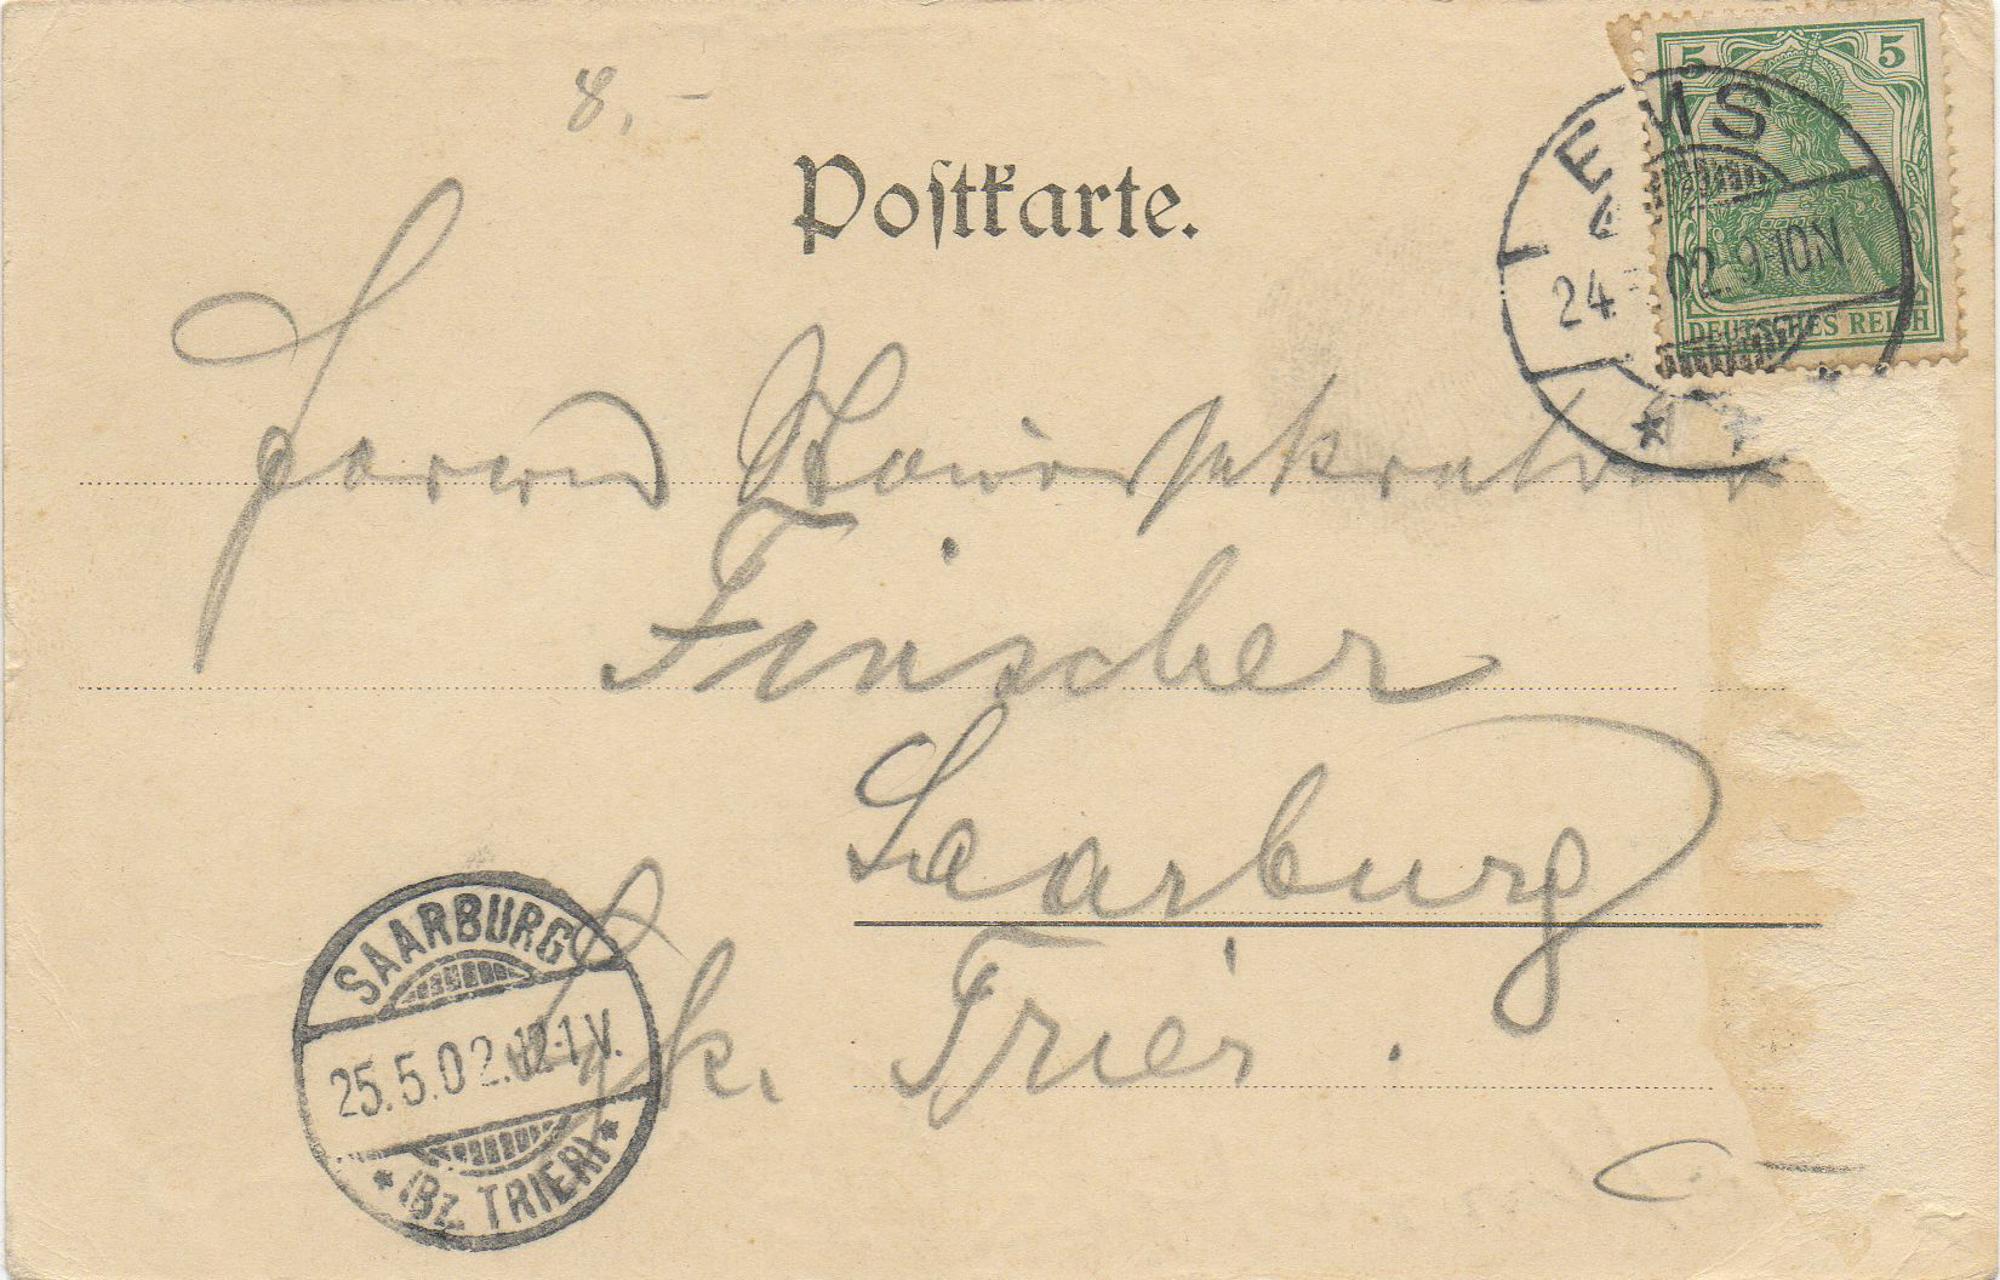 8,-
Postkarte.
5 5
DEUTSCHES REICH
EMS
24. 02. 9-10N.
Herrn
Finscher
Saarburg
Bzk. Trier.
SAARBURG
25.5.02.12-1V.
* (Bz. TRIER) *